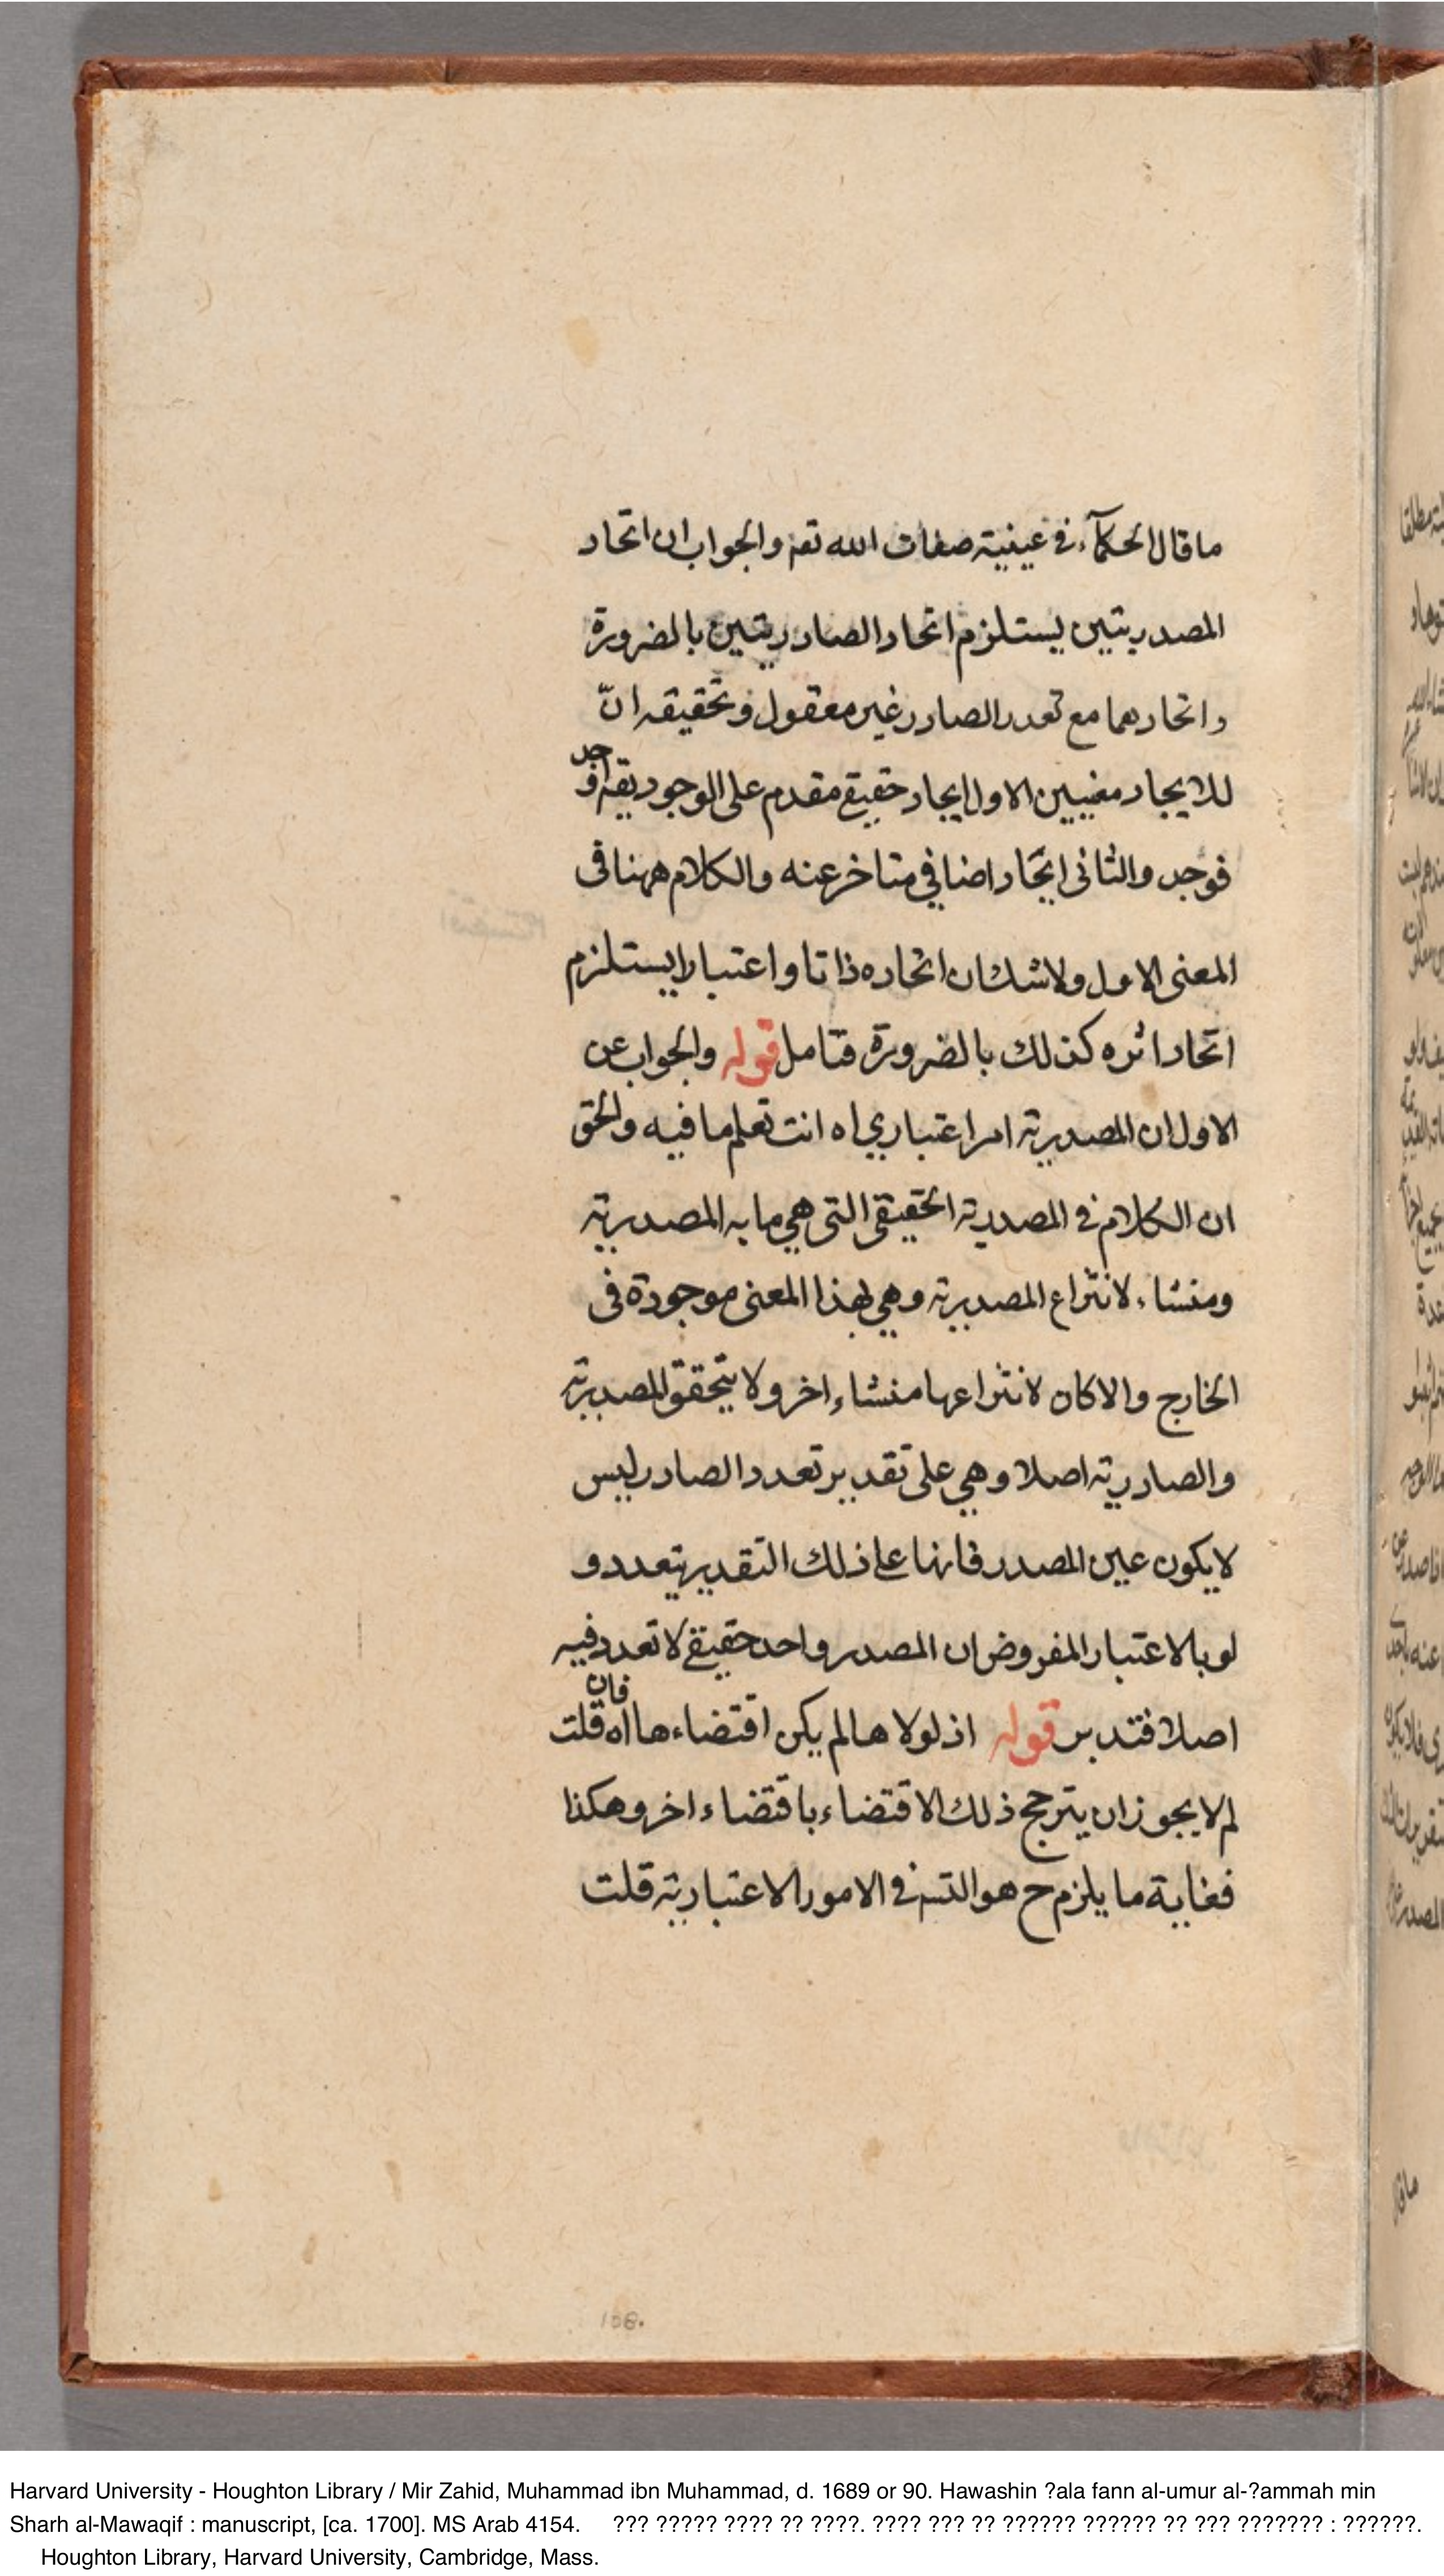 ما قال الحكمآء فى عينية صفات الله تعه والجواب ان اتحاد
المصدريتين يستلزم اتحاد الصادريتين بالضرورة
واتحادهما مع تعدد الصادر غير معقول وتحقيقه انّ
للايجاد معنيين الاول ايجاد حقيقے مقدم على الوجود يقه اوجد
فوجد والثانى ايجاد اضافي متاخر عنه والكلام ههنا فى
المعنى الاول ولا شك ان اتحاده ذاتا واعتبارا يستلزم
اتحاد اثره كذلك بالضرورة فتامل قوله والجواب عن
الاول ان المصدرية امر اعتباري اه انت تعلم ما فيه والحق
ان الكلام فى المصدرية الحقيقى التى هي ما به المصدرية
ومنشاء لانتزاع المصدرية وهي بهذا المعنى موجودة فى
الخارج والا كان لانتزاعها منشاء اخر ولا يتحقق المصدرية
والصادرية اصلا وهي على تقدير تعدد الصادر ليس
لا يكون عين المصدر فانها على ذلك التقدير يتعدد و
لو بالاعتبار المفروض ان المصدر واحد حقيقے لا تعدد فيه
اصلا فتدبر قوله اذ لولاها لم يكن اقتضاءها اه فان قلت
لم لا يجوز ان يترجح ذلك الاقتضاء باقتضاء اخر وهكذا
فغاية ما يلزم ح هو التسه فى الامور الاعتبارية قلت
108.
Harvard University - Houghton Library / Mir Zahid, Muhammad ibn Muhammad, d. 1689 or 90. Hawashin ?ala fann al-umur al-?ammah min
Sharh al-Mawaqif : manuscript, [ca. 1700]. MS Arab 4154. ??? ????? ???? ?? ????. ???? ??? ?? ?????? ?????? ?? ??? ??????? : ??????.
Houghton Library, Harvard University, Cambridge, Mass.